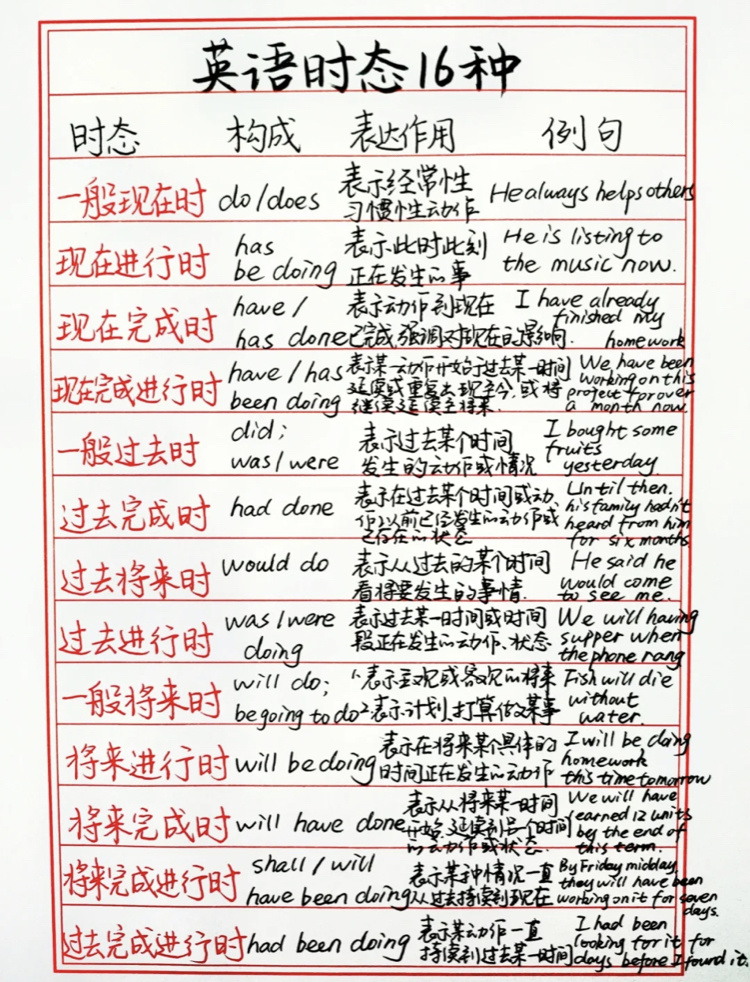 英语时态16种
时态 构成 表达作用 例句
一般现在时 do/does 表示经常性 He always helps others
习惯性动作
现在进行时 has 表示此时此刻 He is listing to
be doing 正在发生的事 the music now.
现在完成时 have / 表示动作到现在 I have already
has done 已完成,强调对现在的影响. finished my
homework
现在完成进行时 have / has 表示某一动作开始于过去某一时间 We have been
been doing 延续或重复出现至今,或将 working on this
继续延续至将来. project for over
a month now.
一般过去时 did; 表示过去某个时间 I bought some
was/were 发生的动作或情况 fruits
yesterday.
过去完成时 had done 表示在过去某个时间或动 Until then.
作以前已经发生的动作或 his family hadn't
已存在的状态 heard from him
for six months.
过去将来时 would do 表示从过去的某个时间 He said he
看将要发生的事情. would come
to see me.
过去进行时 was/were 表示过去某一时间或时间 We will having
doing 段正在发生的动作、状态 supper when
the phone rang
一般将来时 will do; 1、表示主观或客观的将来 Fish will die
be going to do 2表示计划,打算做某事 without
water.
将来进行时 will be doing 表示在将来某个具体的 I will be doing
时间正在发生的动作 homework
this time tomorrow
将来完成时 will have done 表示从将来某一时间 We will have
开始,延续到另一个时间 learned 12 units
的动作或状态. by the end of
this term.
将来完成进行时 shall / will 表示某种情况一直 By Friday midday,
have been doing 从过去持续到现在 they will have been
working on it for seven
days.
过去完成进行时 had been doing 表示某动作一直 I had been
持续到过去某一时间 looking for it for
days before I found it.